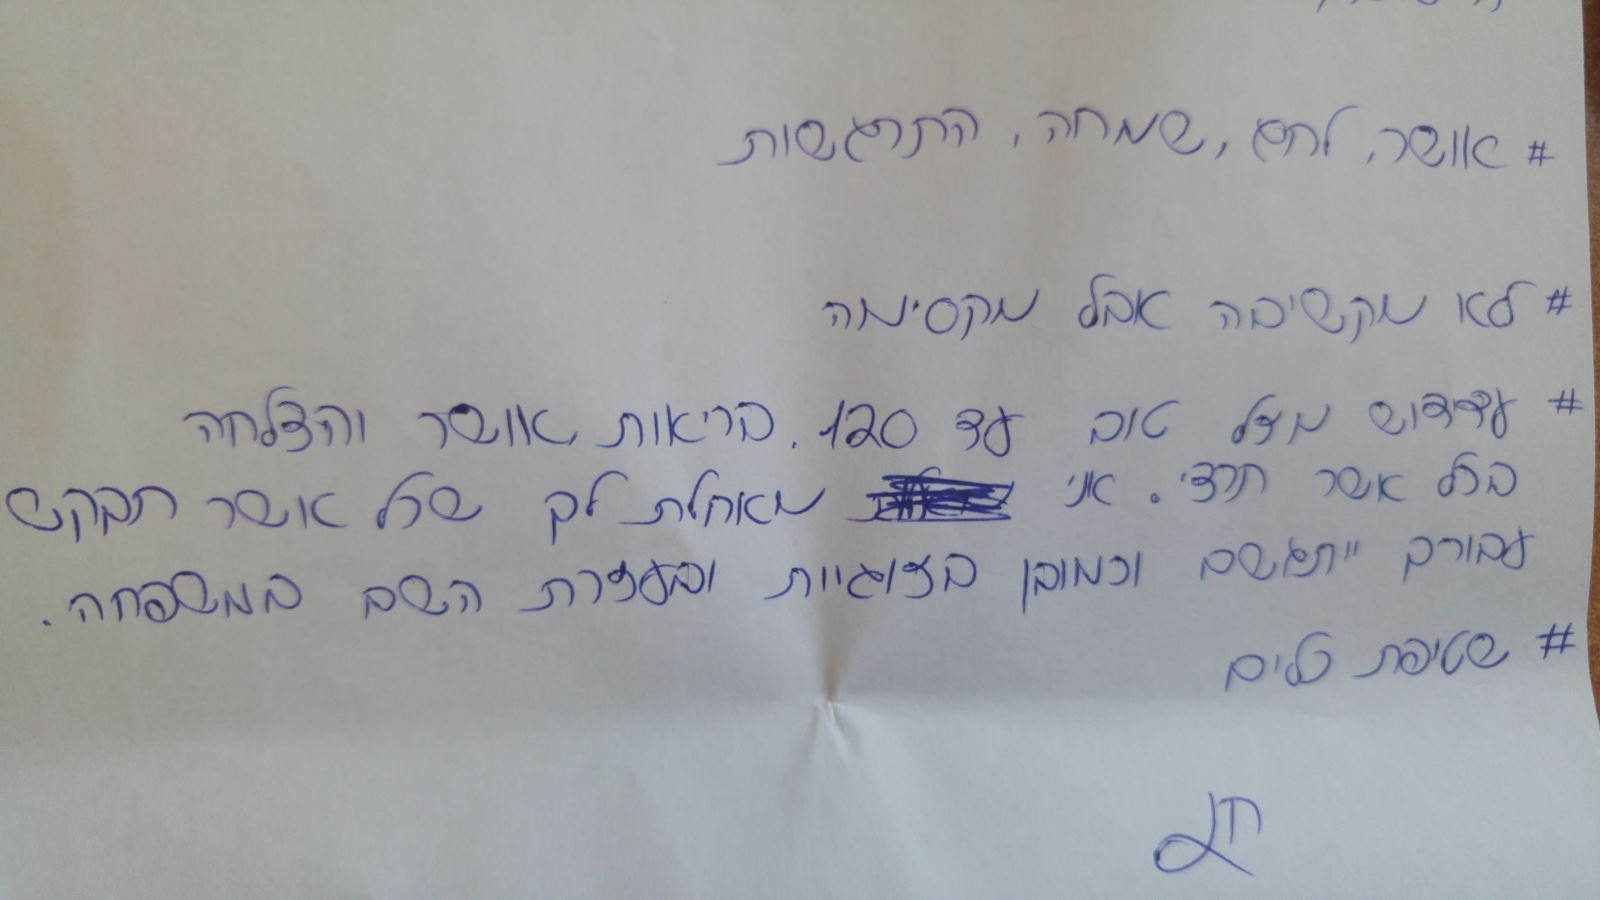 # אושר, לחץ, שמחה, התרגשות
# לא מקשיבה אבל מקסימה
# עדידוש מצל טוב עד 120. בריאות, אושר והצלחה
בכל אשר תרצי. אני מאחלת לך שכל אשר תבקש
עבורך ייתגשם וכמובן בזוגיות ובעזרת השם במשפחה.
# שטיפת כלים
חן